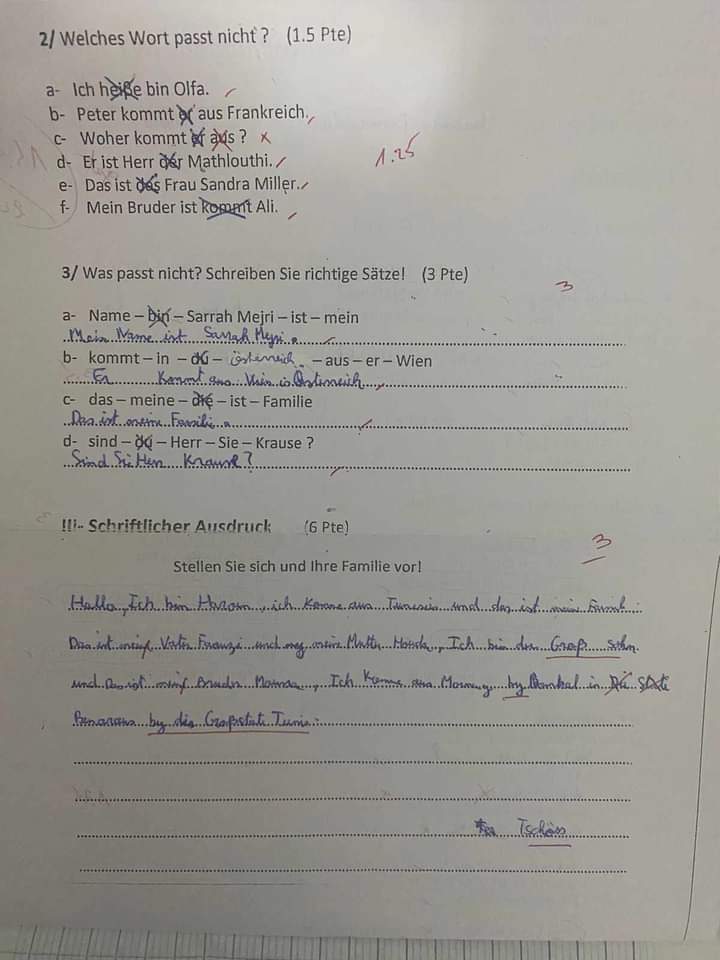 2/ Welches Wort passt nicht ? (1.5 Pte)
a- Ich heiße bin Olfa.
b- Peter kommt er aus Frankreich.
c- Woher kommt er aus ?
1.25
d- Er ist Herr der Mathlouthi.
e- Das ist das Frau Sandra Miller.
f- Mein Bruder ist kommt Ali.
3/ Was passt nicht? Schreiben Sie richtige Sätze! (3 Pte)
3
a- Name – bin – Sarrah Mejri – ist – mein
Mein Name ist Sarrah Mejri.
b- kommt – in – du – Österreich – aus – er – Wien
Er Kommt aus Wien Österreich
c- das – meine – die – ist – Familie
Das ist meine Familie.
d- sind – du – Herr – Sie – Krause ?
Sind Sie Herr Krause?
III- Schriftlicher Ausdruck (6 Pte)
3
Stellen Sie sich und Ihre Familie vor!
Hallo, Ich bin ich Komme aus und das ist mein
Das ist Vater und meine Ich bin der Groß sohn
und Das ist Bruder Ich Komme aus by in
by die Tunis.
Tschöss